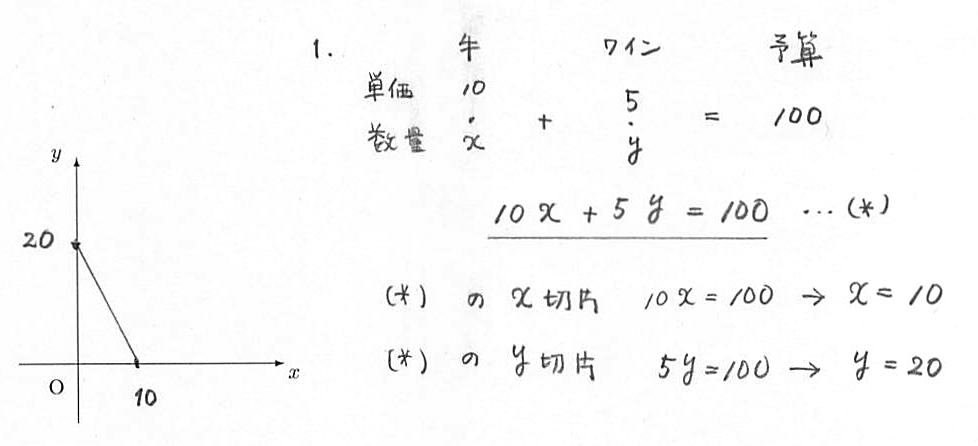 1. 牛 ワイン 予算
単価 10 5
+ = 100
数量 x y
10x + 5y = 100 … (*)
(*) の x 切片 10x = 100 → x = 10
(*) の y 切片 5y = 100 → y = 20
y
20
O
10
x